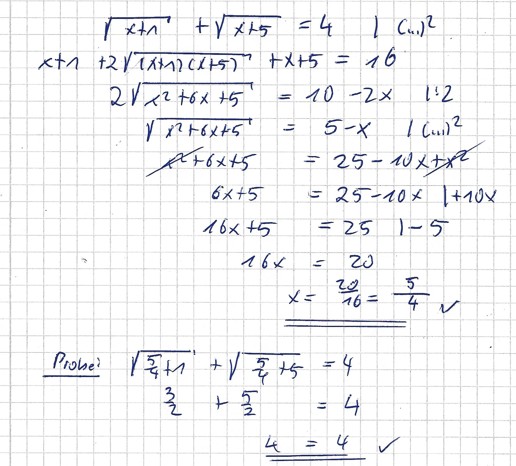 √(x+1) + √(x+5) = 4 | (...)²
x+1 + 2√((x+1)(x+5)) + x+5 = 16
2√(x²+6x+5) = 10 - 2x | :2
√(x²+6x+5) = 5-x | (...)²
x²+6x+5 = 25-10x+x²
6x+5 = 25-10x |+10x
16x+5 = 25 | -5
16x = 20
x = 20/16 = 5/4 ✓
Probe: √(5/4+1) + √(5/4+5) = 4
3/2 + 5/2 = 4
4 = 4 ✓